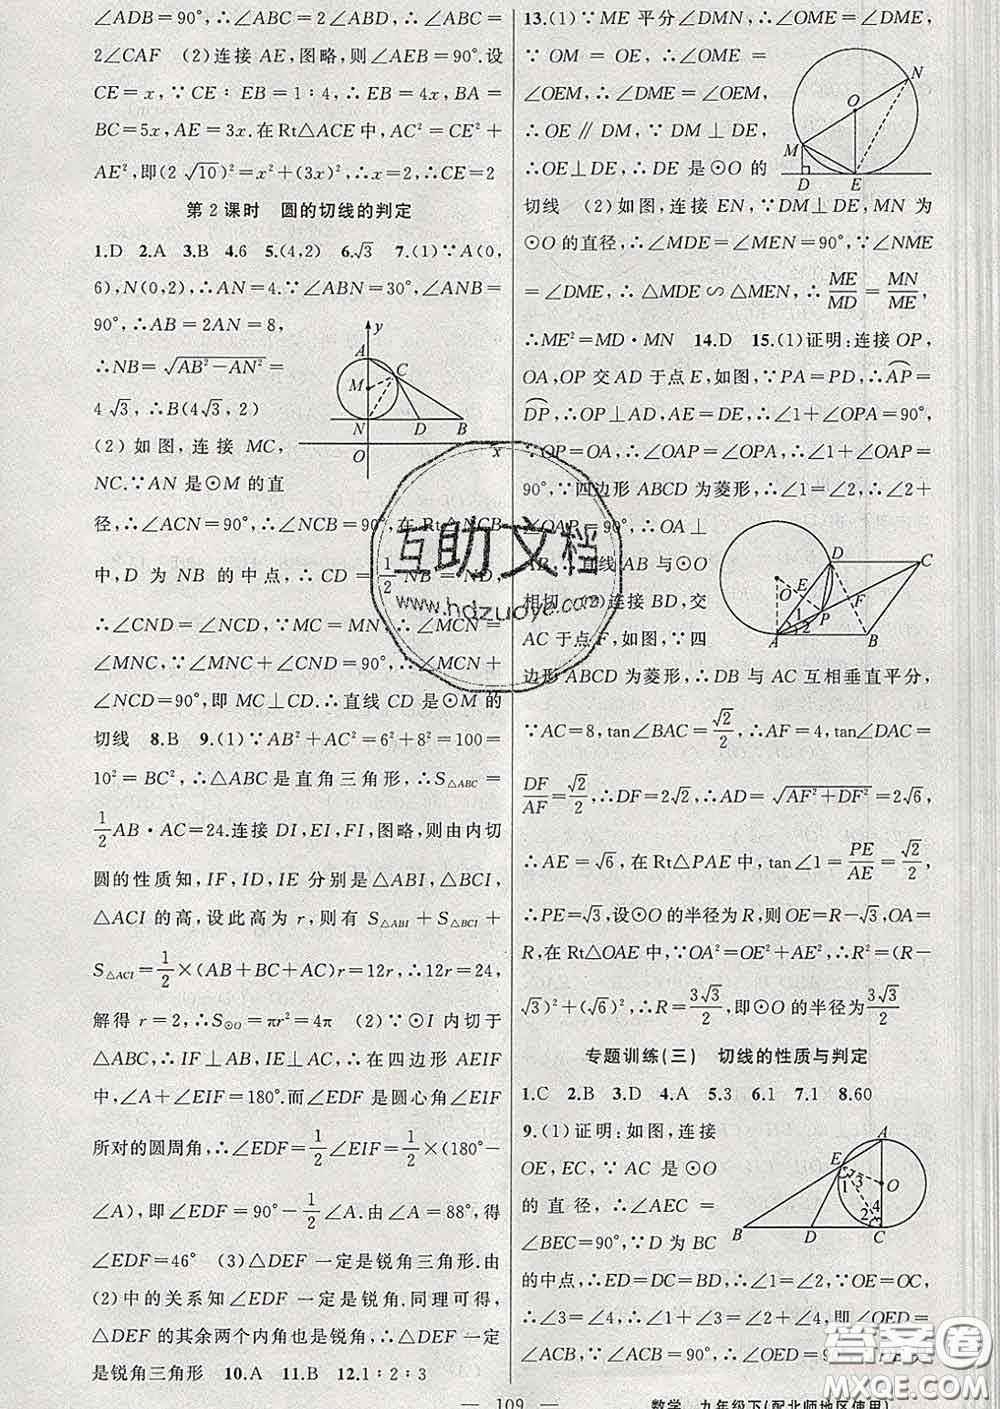 ∠ADB=90°.∴∠ABC=2∠ABD,∴∠ABC=
2∠CAF (2)连接 AE,图略,则∠AEB=90°.设
CE=x,∵CE∶EB=1∶4,∴EB=4x,BA=
BC=5x,AE=3x.在Rt△ACE中,AC²=CE²+
AE²,即(2√10)²=x²+(3x)²,∴x=2,∴CE=2
第2课时 圆的切线的判定
1.D 2.A 3.B 4.6 5.(4,2) 6.√3 7.(1)∵A(0,
6),N(0,2),∴AN=4.∵∠ABN=30°,∠ANB=
90°,∴AB=2AN=8,
∴NB=√(AB²-AN²)=
4√3,∴B(4√3,2)
(2)如图,连接 MC,
NC.∵AN 是⊙M 的直
径,∴∠ACN=90°,∴∠NCB=90°,在 Rt△NCB
中,D 为 NB 的中点,∴CD=1/2 NB=ND,
∴∠CND=∠NCD,∵MC=MN,∴∠MCN=
∠MNC,∵∠MNC+∠CND=90°,∴∠MCN+
∠NCD=90°,即 MC⊥CD.∴直线 CD 是⊙M 的
切线 8.B 9.(1)∵AB²+AC²=6²+8²=100=
10²=BC²,∴△ABC 是直角三角形,∴S△ABC=
1/2 AB·AC=24.连接 DI,EI,FI,图略,则由内切
圆的性质知,IF,ID,IE 分别是△ABI,△BCI,
△ACI 的高,设此高为 r,则有 S△ABI+S△BCI+
S△ACI=1/2×(AB+BC+AC)r=12r,∴12r=24,
解得 r=2,∴S⊙O=πr²=4π (2)∵⊙I 内切于
△ABC,∴IF⊥AB,IE⊥AC,∴在四边形 AEIF
中,∠A+∠EIF=180°.而∠EDF 是圆心角∠EIF
所对的圆周角,∴∠EDF=1/2∠EIF=1/2×(180°-
∠A),即∠EDF=90°-1/2∠A.由∠A=88°,得
∠EDF=46° (3)△DEF 一定是锐角三角形.由
(2)中的关系知∠EDF 一定是锐角.同理可得,
△DEF 的其余两个内角也是锐角,∴△DEF 一定
是锐角三角形 10.A 11.B 12.1∶2∶3
13.(1)∵ME 平分∠DMN,∴∠OME=∠DME,
∵OM=OE,∴∠OME=
∠OEM,∴∠DME=∠OEM,
∴OE∥DM,∵DM⊥DE,
∴OE⊥DE,∴DE 是⊙O 的
切线 (2)如图,连接 EN,∵DM⊥DE,MN 为
⊙O 的直径,∴∠MDE=∠MEN=90°,∵∠NME
=∠DME,∴△MDE∽△MEN,∴ME/MD=MN/ME,
∴ME²=MD·MN 14.D 15.(1)证明:连接 OP,
OA,OP 交 AD 于点 E,如图,∵PA=PD,∴AP=
DP,∴OP⊥AD,AE=DE,∴∠1+∠OPA=90°,
∵OP=OA,∴∠OAP=∠OPA,∴∠1+∠OAP=
90°,∵四边形 ABCD 为菱形,∴∠1=∠2,∴∠2+
∠OAP=90°,∴OA⊥
AB,∴直线 AB 与⊙O
相切 (2)连接 BD,交
AC 于点 F,如图,∵四
边形 ABCD 为菱形,∴DB 与 AC 互相垂直平分,
∵AC=8,tan∠BAC=√2/2,∴AF=4,tan∠DAC=
DF/AF=√2/2,∴DF=2√2,∴AD=√(AF²+DF²)=2√6,
∴AE=√6,在 Rt△PAE 中,tan∠1=PE/AE=√2/2,
∴PE=√3,设⊙O 的半径为 R,则 OE=R-√3,OA=
R,在 Rt△OAE 中,∵OA²=OE²+AE²,∴R²=(R-
√3)²+(√6)²,∴R=3√3/2,即⊙O 的半径为3√3/2
专题训练(三) 切线的性质与判定
1.C 2.B 3.D 4.A 5.3 6.1 7.1 8.60
9.(1)证明:如图,连接
OE,EC,∵AC 是⊙O
的直径,∴∠AEC=
∠BEC=90°,∵D 为 BC
的中点,∴ED=DC=BD,∴∠1=∠2,∵OE=OC,
∴∠3=∠4,∴∠1+∠3=∠2+∠4,即∠OED=
∠ACB,∵∠ACB=90°,∴∠OED=90°
— 109 —
数学 九年级下(配北师地区使用)
互助文档
www.hdzuoye.com
答案圈